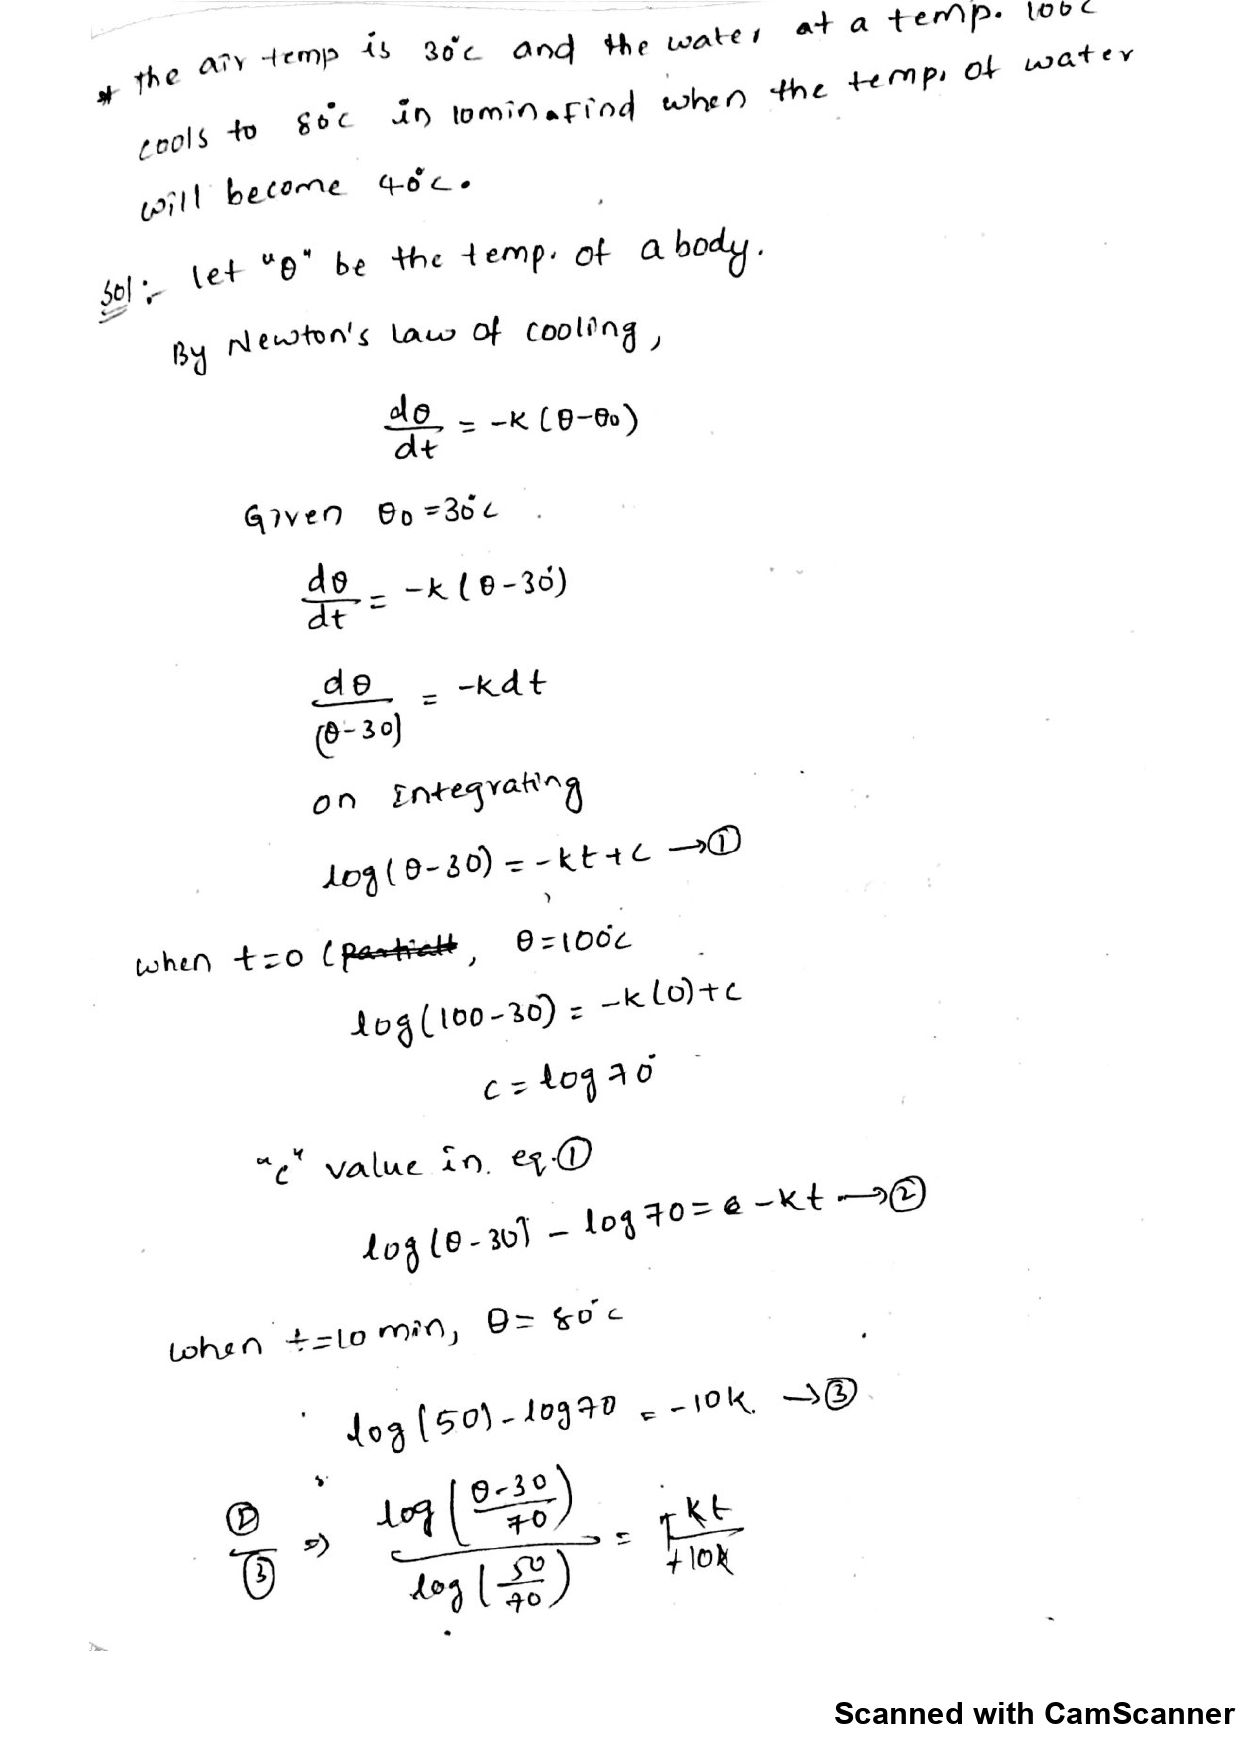 * the air temp is 30°c and the water at a temp. 100c
cools to 80°c in 10min. Find when the temp. of water
will become 40°c.
Sol:- let "θ" be the temp. of a body.
By Newton's law of cooling,
dθ/dt = -k(θ-θ0)
Given θ0 = 30°c
dθ/dt = -k(θ-30°)
dθ/(θ-30) = -kdt
on Integrating
log(θ-30) = -kt+c →①
when t=0 (, θ=100°c
log(100-30°) = -k(0)+c
c = log 70°
"c" value in eq.①
log(θ-30) - log 70 = -kt →②
when t=10 min, θ= 80°c
log(50) - log 70 = -10k. →③
②/③ ⇒ log((θ-30)/70) / log(50/70) = +kt/+10k
Scanned with CamScanner